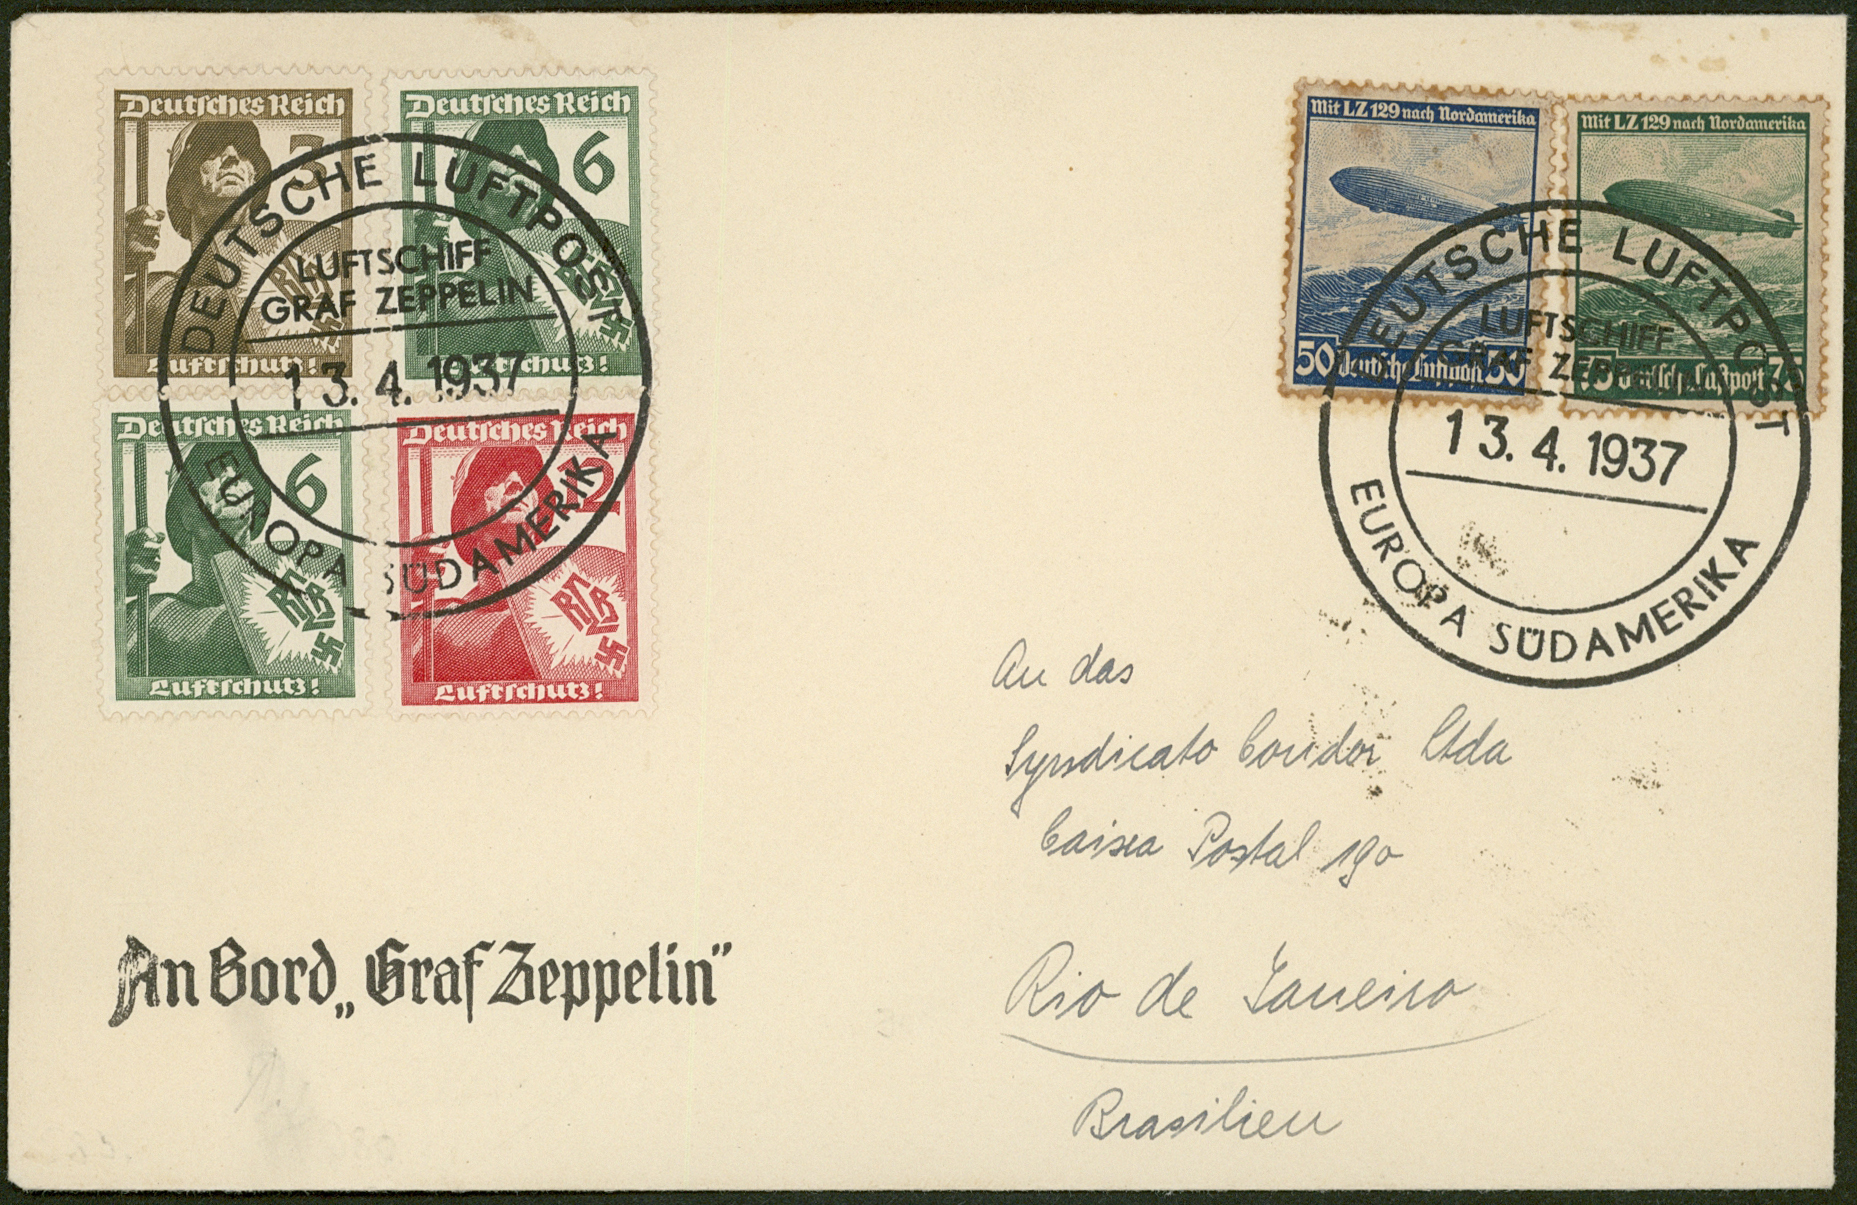 Deutsches Reich
3
Luftschutz!
Deutsches Reich
6
Luftschutz!
Deutsches Reich
6
RLB
Luftschutz!
Deutsches Reich
12
RLB
Luftschutz!
DEUTSCHE LUFTPOST
LUFTSCHIFF
GRAF ZEPPELIN
13.4.1937
EUROPA SÜDAMERIKA
Mit LZ 129 nach Nordamerika
50 Deutsche Luftpost 50
Mit LZ 129 nach Nordamerika
75 Deutsche Luftpost 75
DEUTSCHE LUFTPOST
LUFTSCHIFF
GRAF ZEPPELIN
13.4.1937
EUROPA SÜDAMERIKA
An das
Syndicato Condor Ltda
Caixa Postal 190
Rio de Janeiro
Brasilien
An Bord „Graf Zeppelin"